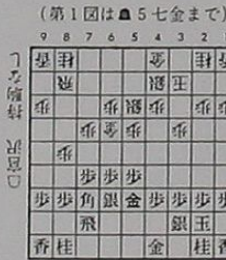 (第1図は☗5七金まで)
9 8 7 6 5 4 3 2
□宮沢 持駒 なし
香 桂 金 桂 香
飛 銀 王
歩 歩 銀 歩 歩
歩 金 歩 歩
歩
歩 歩 歩
歩 歩 角 銀 金 歩 歩 歩
飛 銀 玉
香 桂 金 桂 香